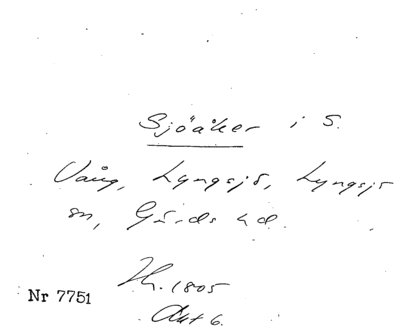 Sjöåker i S.
Vång, Lyngsjö, Lyngsjö
sn, Gärds hd.
Hh. 1805
Akt 6.
Nr 7751